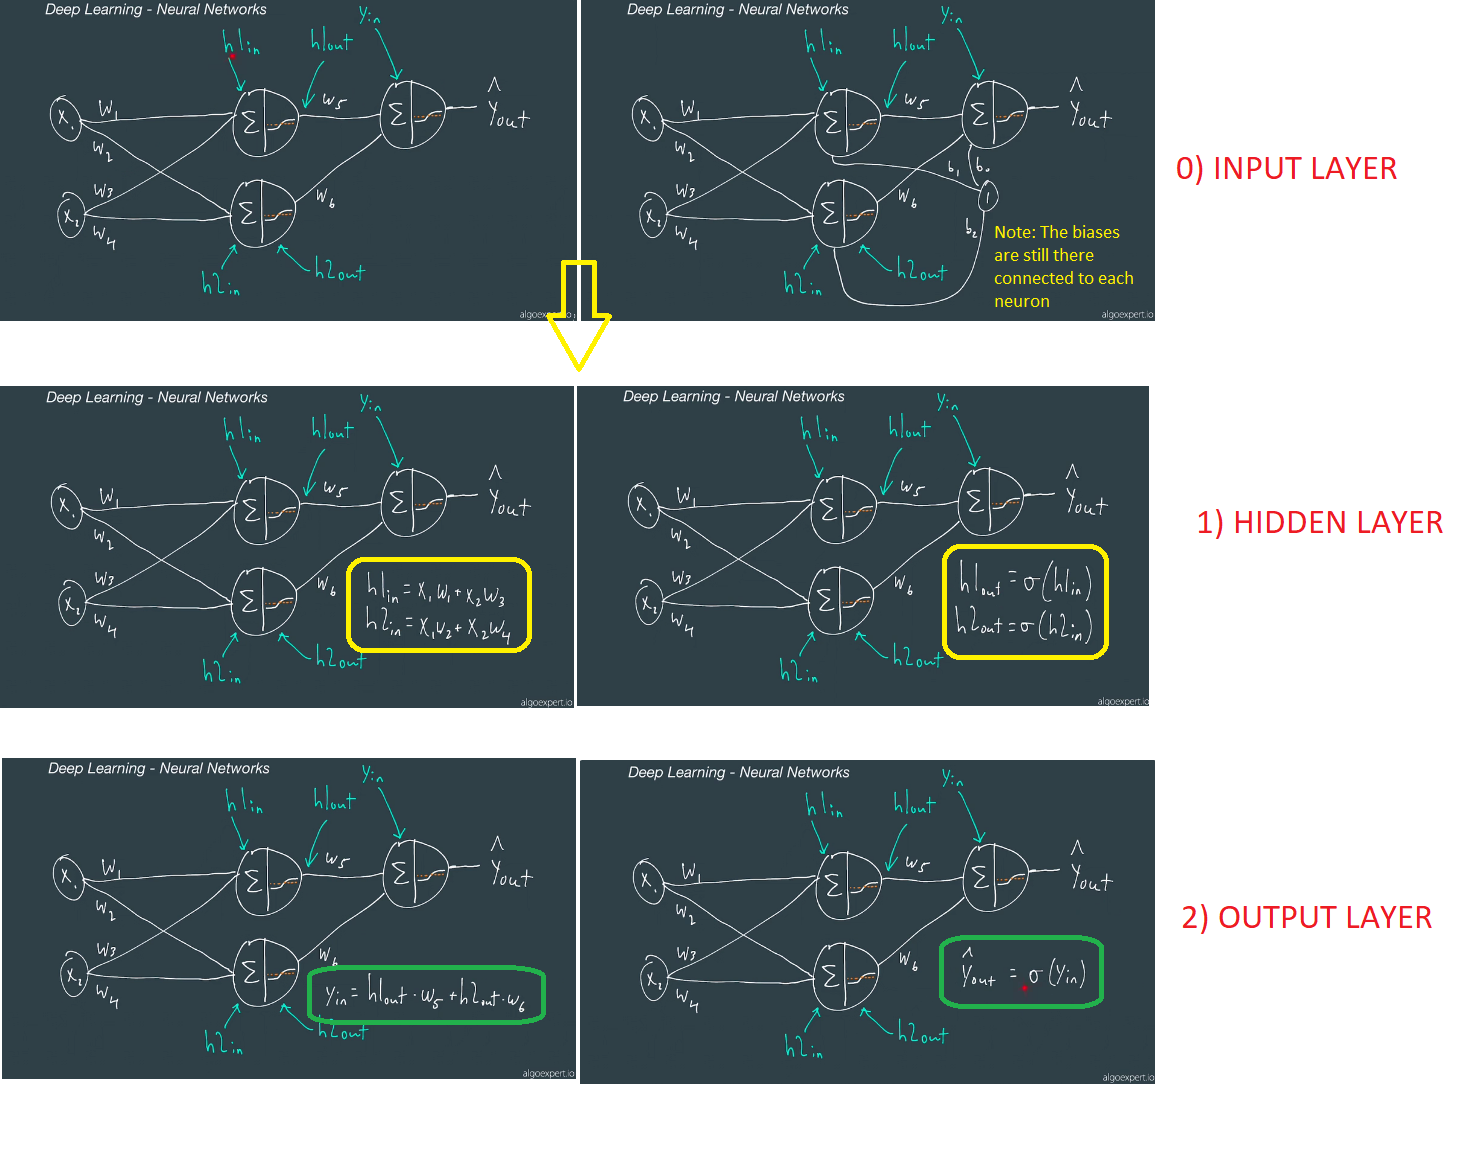 Deep Learning - Neural Networks
h1in
h1out
yin
x1
w1
w2
w5
Σ
Σ
ŷout
w3
x2
w4
Σ
w6
h2in
h2out
algoexpert.io
Deep Learning - Neural Networks
h1in
h1out
yin
x1
w1
w2
w5
Σ
Σ
ŷout
b1
b0
w3
x2
w4
Σ
w6
1
b2
h2in
h2out
Note: The biases
are still there
connected to each
neuron
algoexpert.io
0) INPUT LAYER
Deep Learning - Neural Networks
h1in
h1out
yin
x1
w1
w2
w5
Σ
Σ
ŷout
w3
x2
w4
Σ
w6
h1in = x1w1 + x2w3
h2in = x1w2 + x2w4
h2in
h2out
algoexpert.io
Deep Learning - Neural Networks
h1in
h1out
yin
x1
w1
w2
w5
Σ
Σ
ŷout
w3
x2
w4
Σ
w6
h1out = σ(h1in)
h2out = σ(h2in)
h2in
h2out
algoexpert.io
1) HIDDEN LAYER
Deep Learning - Neural Networks
h1in
h1out
yin
x1
w1
w2
w5
Σ
Σ
ŷout
w3
x2
w4
Σ
w6
yin = h1out · w5 + h2out · w6
h2in
h2out
algoexpert.io
Deep Learning - Neural Networks
h1in
h1out
yin
x1
w1
w2
w5
Σ
Σ
ŷout
w3
x2
w4
Σ
w6
ŷout = σ(yin)
h2in
h2out
algoexpert.io
2) OUTPUT LAYER